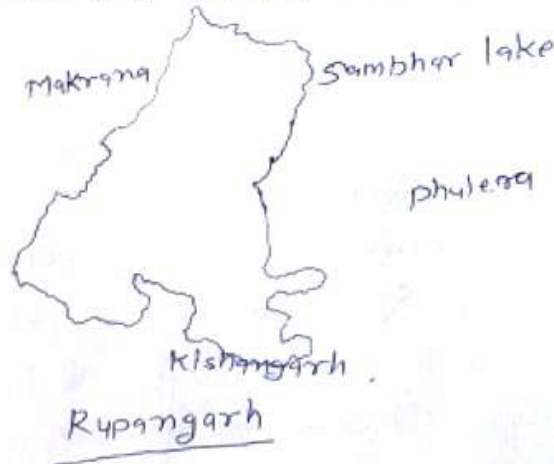 Makrana
Sambhar lake
phulera
Kishangarh.
Rupangarh